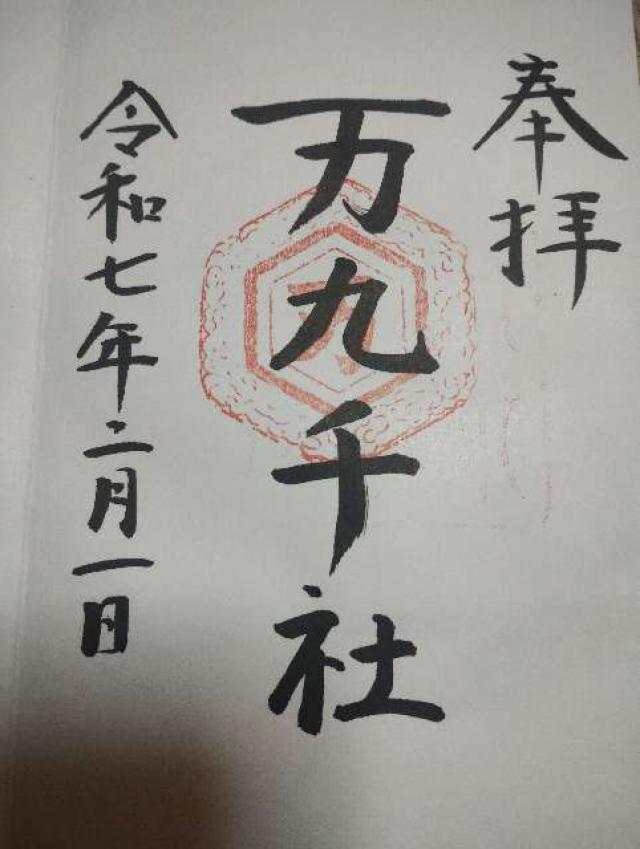 奉拝
万九千社
令和七年二月一日